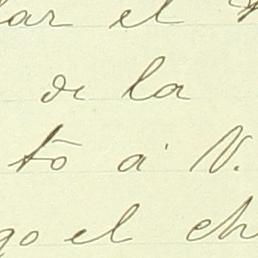 lar el
de la
to á V.
go el ch